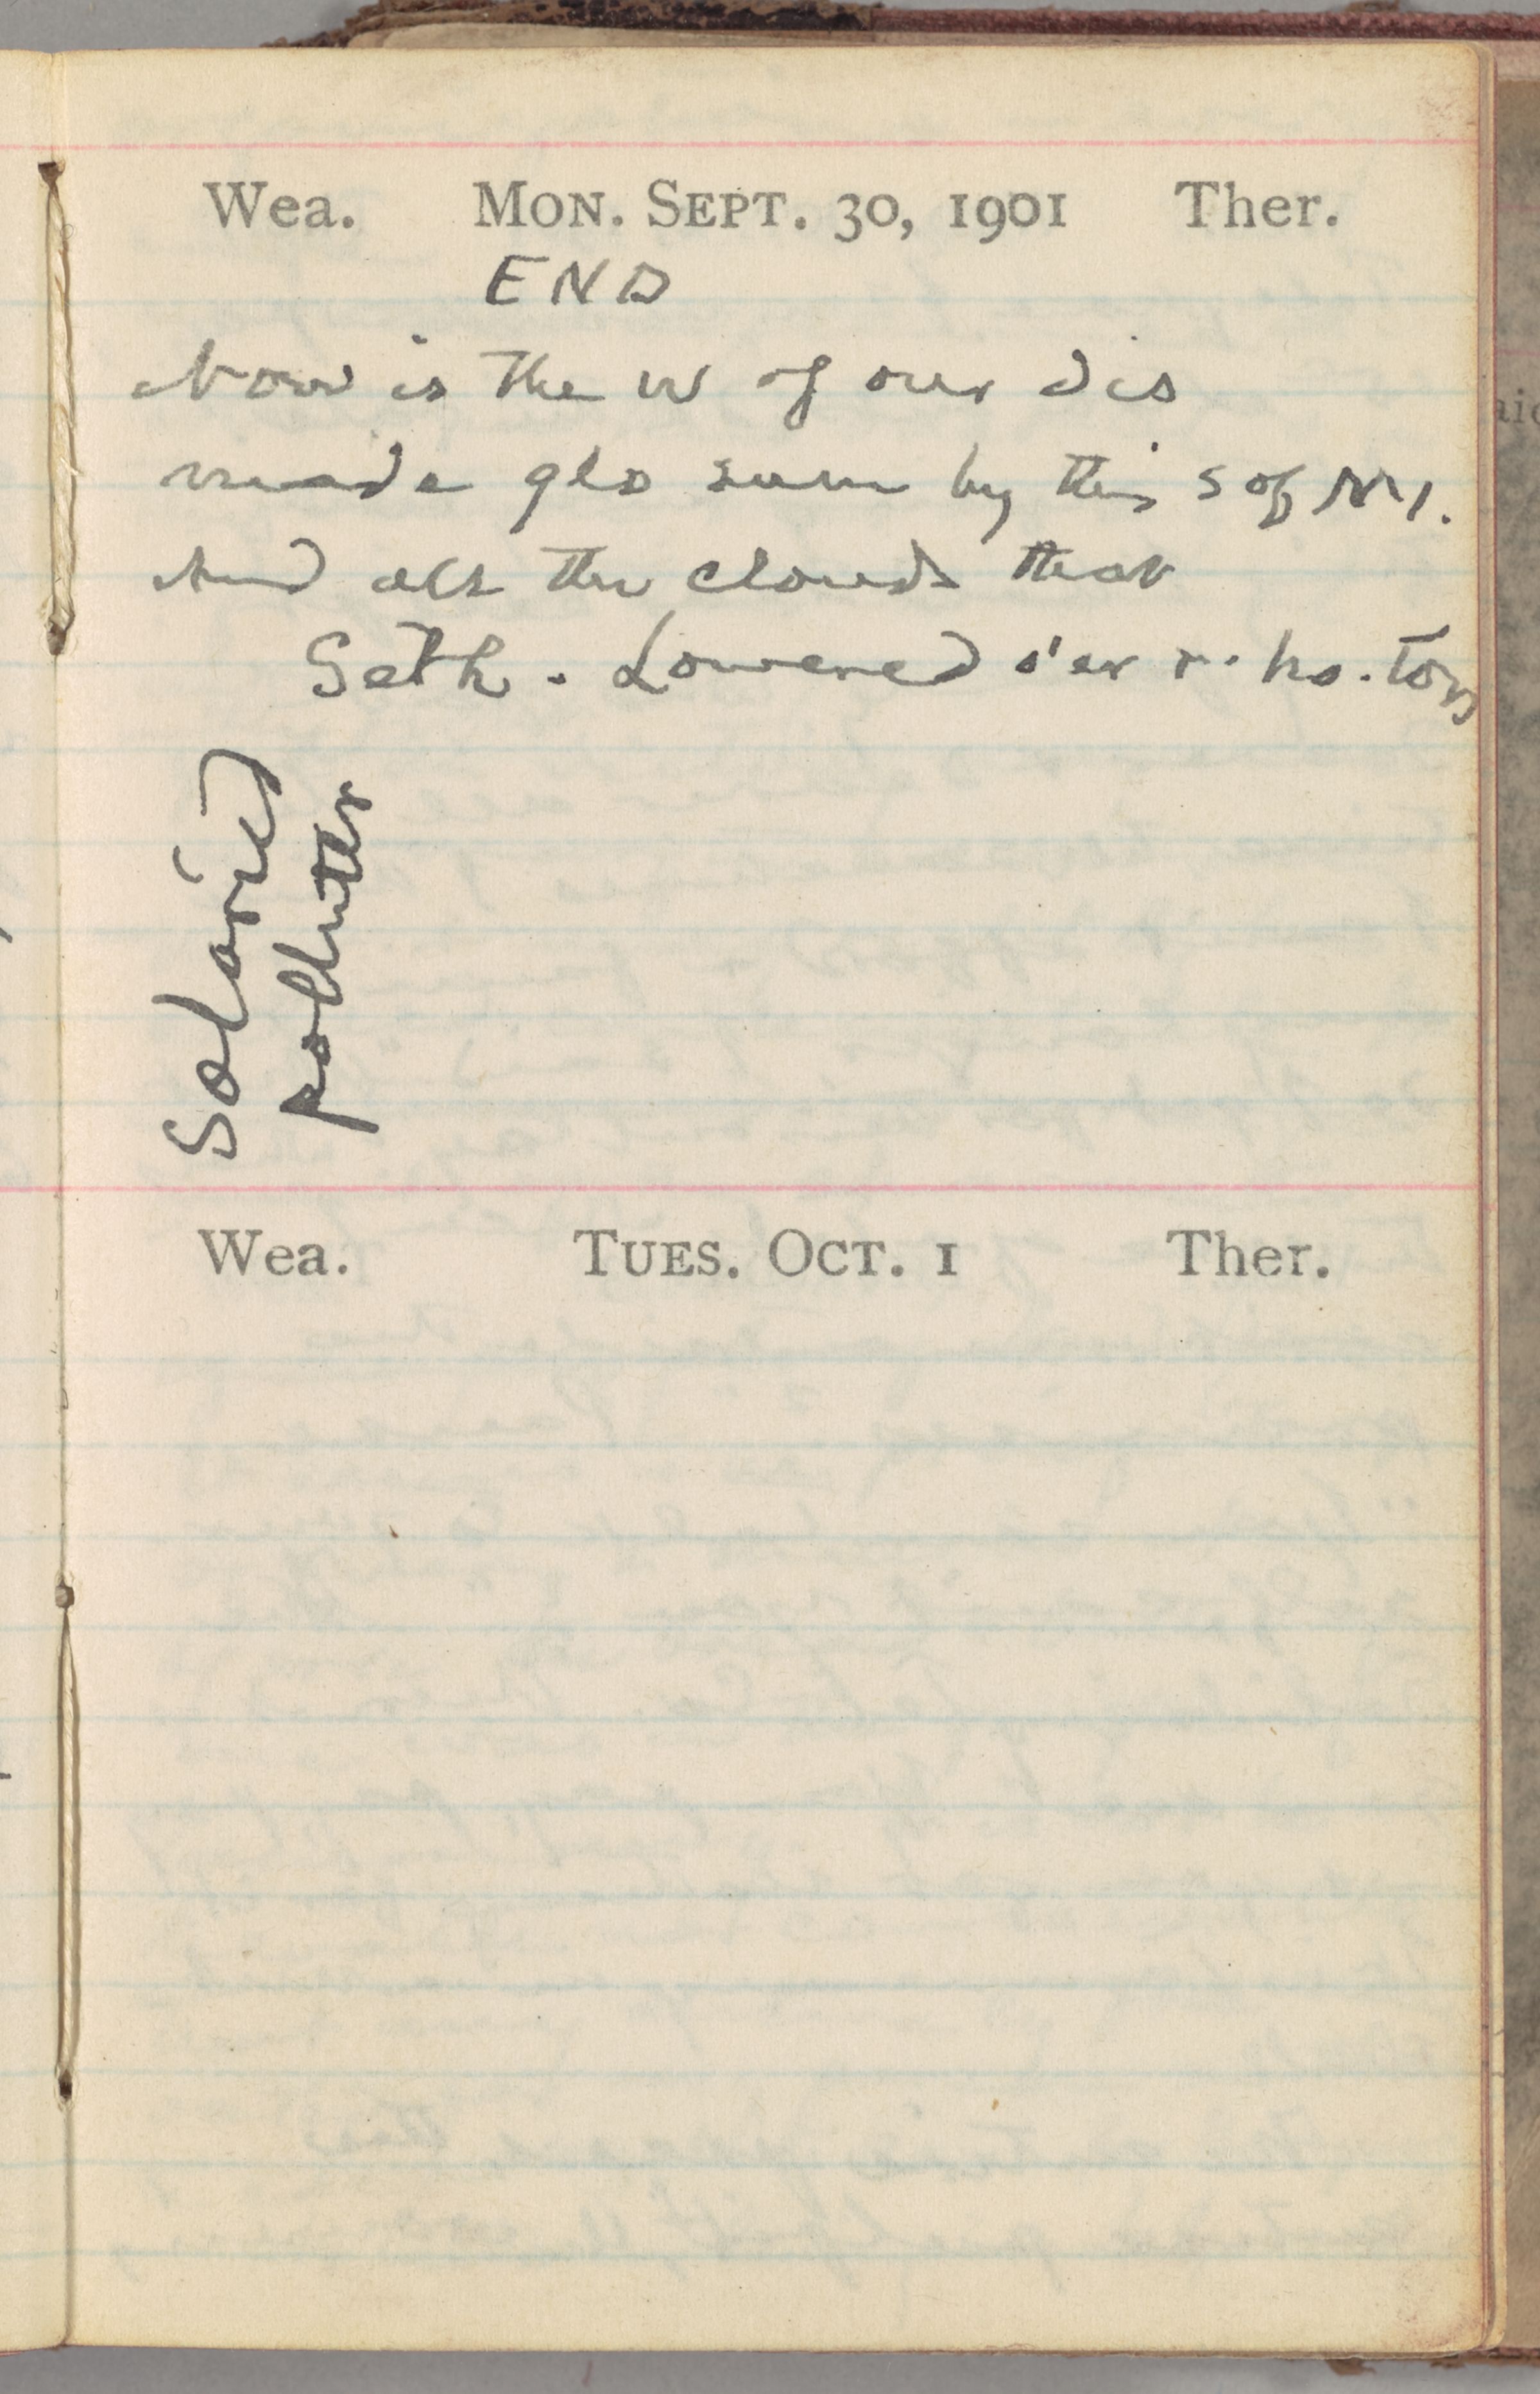 Wea. MON. SEPT. 30, 1901 Ther.
END
Now is the w of our dis
made glo sum by this s of N.Y.
And all the clouds that
Seth. Lowered o'er r. ho. Tom
Salaried
polluter
Wea. TUES. OCT. 1 Ther.